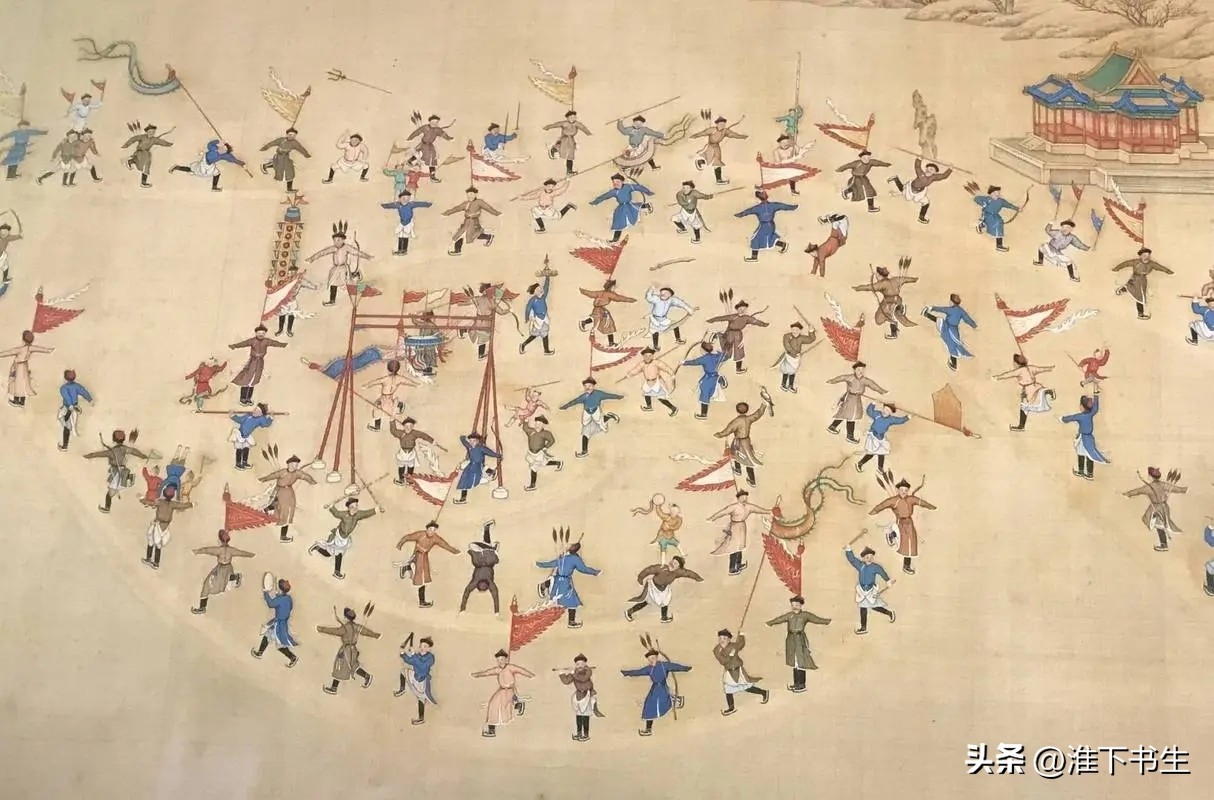 头条 @淮下书生